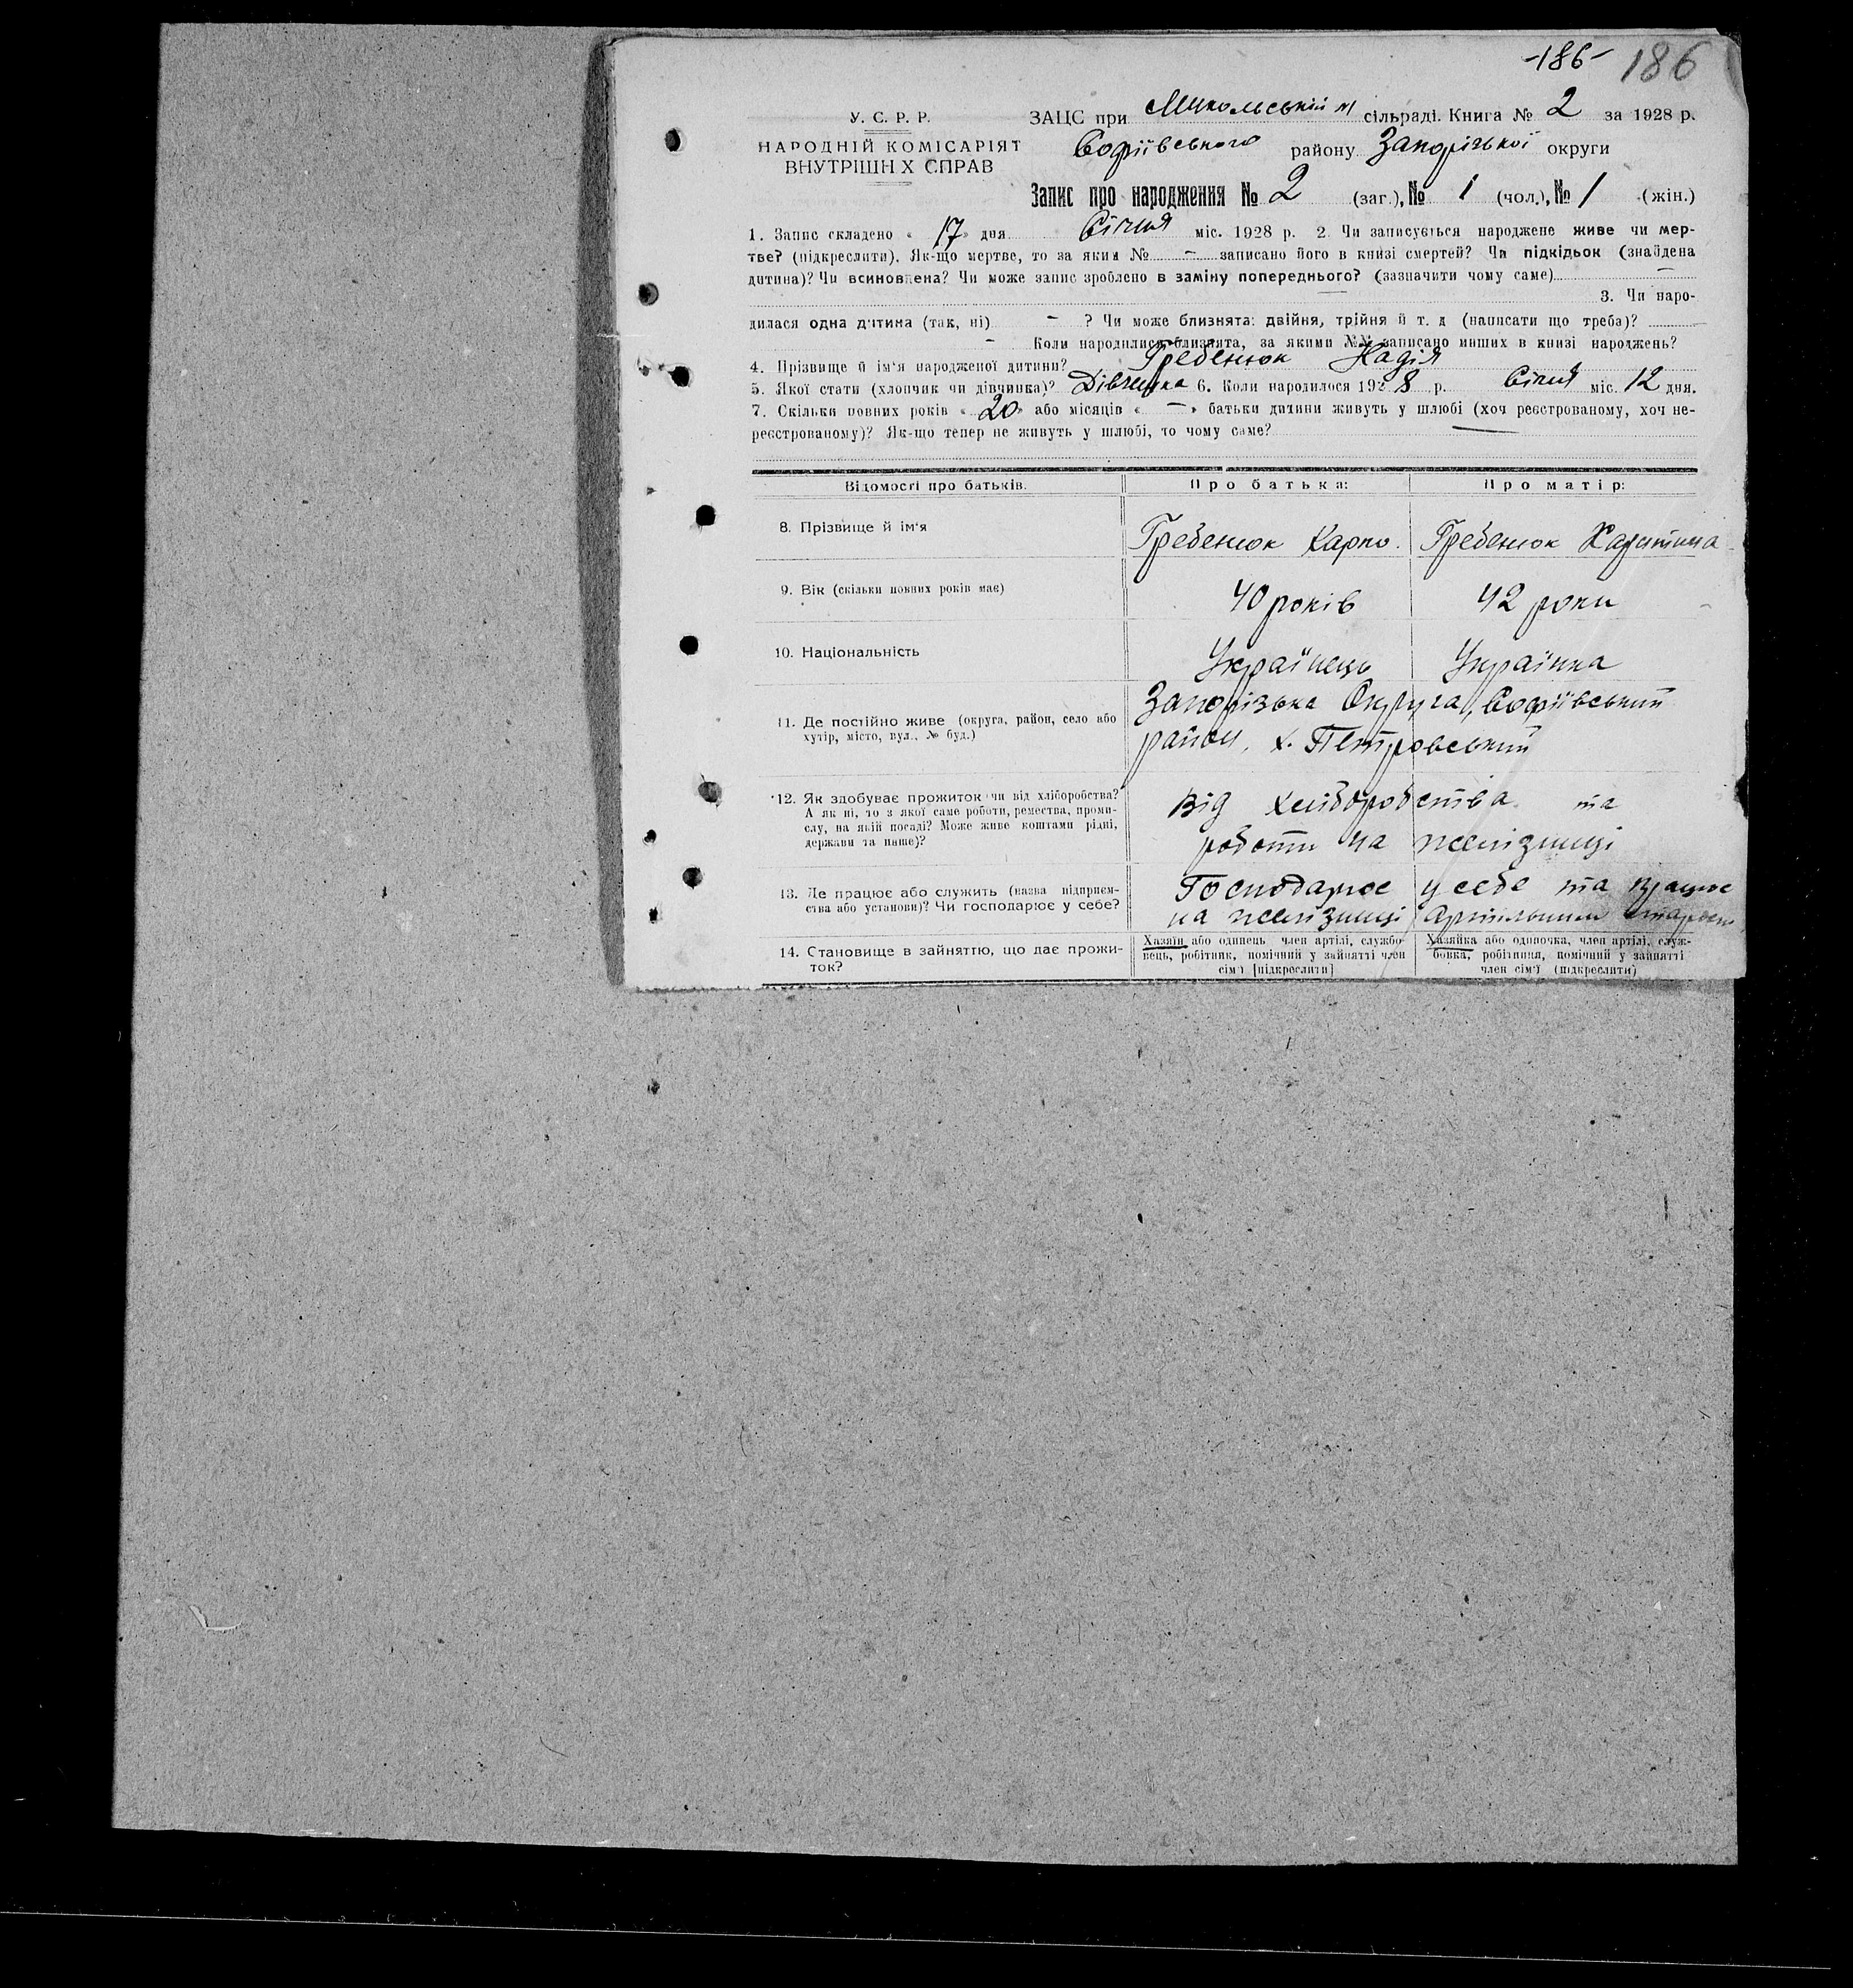 -186- 186
У. С. Р. Р.
НАРОДНІЙ КОМІСАРІЯТ
ВНУТРІШН Х СПРАВ
ЗАЦС при Микольській №1 сільраді. Книга № 2 за 1928 р.
Софіївського району Запорізької округи
Запис про народження № 2 (заг.), № 1 (чол.), № 1 (жін.)
1. Запис складено « 17 » дня Січня міс. 1928 р. 2. Чи записується народжене живе чи мер-
тве? (підкреслити). Як-що мертве, то за яким № – записано його в книзі смертей? Чи підкідьок (знайдена
дитина)? Чи всиновлена? Чи може запис зроблено в заміну попереднього? (зазначити чому саме) –
3. Чи наро-
дилася одна дитина (так, ні) – ? Чи може близнята: двійня, трійня й т. д (написати що треба)?
– Коли народилися близнята, за якими №№ записано инших в книзі народжень?
4. Прізвище й ім'я народженої дитини? Гребенюк Надія
5. Якої стати (хлопчик чи дівчинка)? Дівчинка 6. Коли народилося 192 8 р. Січня міс. 12 дня.
7. Скільки повних років « 20 » або місяців « – » батьки дитини живуть у шлюбі (хоч реєстрованому, хоч не-
реєстрованому)? Як-що тепер не живуть у шлюбі, то чому саме? —
Відомості про батьків. Про батька: Про матір:
8. Прізвище й ім'я Гребенюк Карпо. Гребенюк Харитина
9. Вік (скільки повних років має) 40 років 42 роки
10. Національність Українець Українка
11. Де постійно живе (округа, район, село або
хутір, місто, вул., № буд.)
Запорізька Округа, Софіївський
район, х. Петровський
12. Як здобуває прожиток чи від хліборобства?
А як ні, то з якої саме роботи, ремества, проми-
слу, на якій посаді? Може живе коштами рідні,
держави та инше)?
Від хліборобства та
роботи на желізниці
13. Де працює або служить (назва підприєм-
ства або установи)? Чи господарює у себе?
Господарює у себе та працює
на желізниці Артільним
14. Становище в зайняттю, що дає прожи-
ток?
Хазяїн або одинець член артілі, службо-
вець, робітник, помічний у зайнятті член
сім'ї [підкреслити]
Хазяйка або одиночка, член артілі, служ-
бовка, робітниця, помічний у зайнятті
член сім'ї (підкреслити)